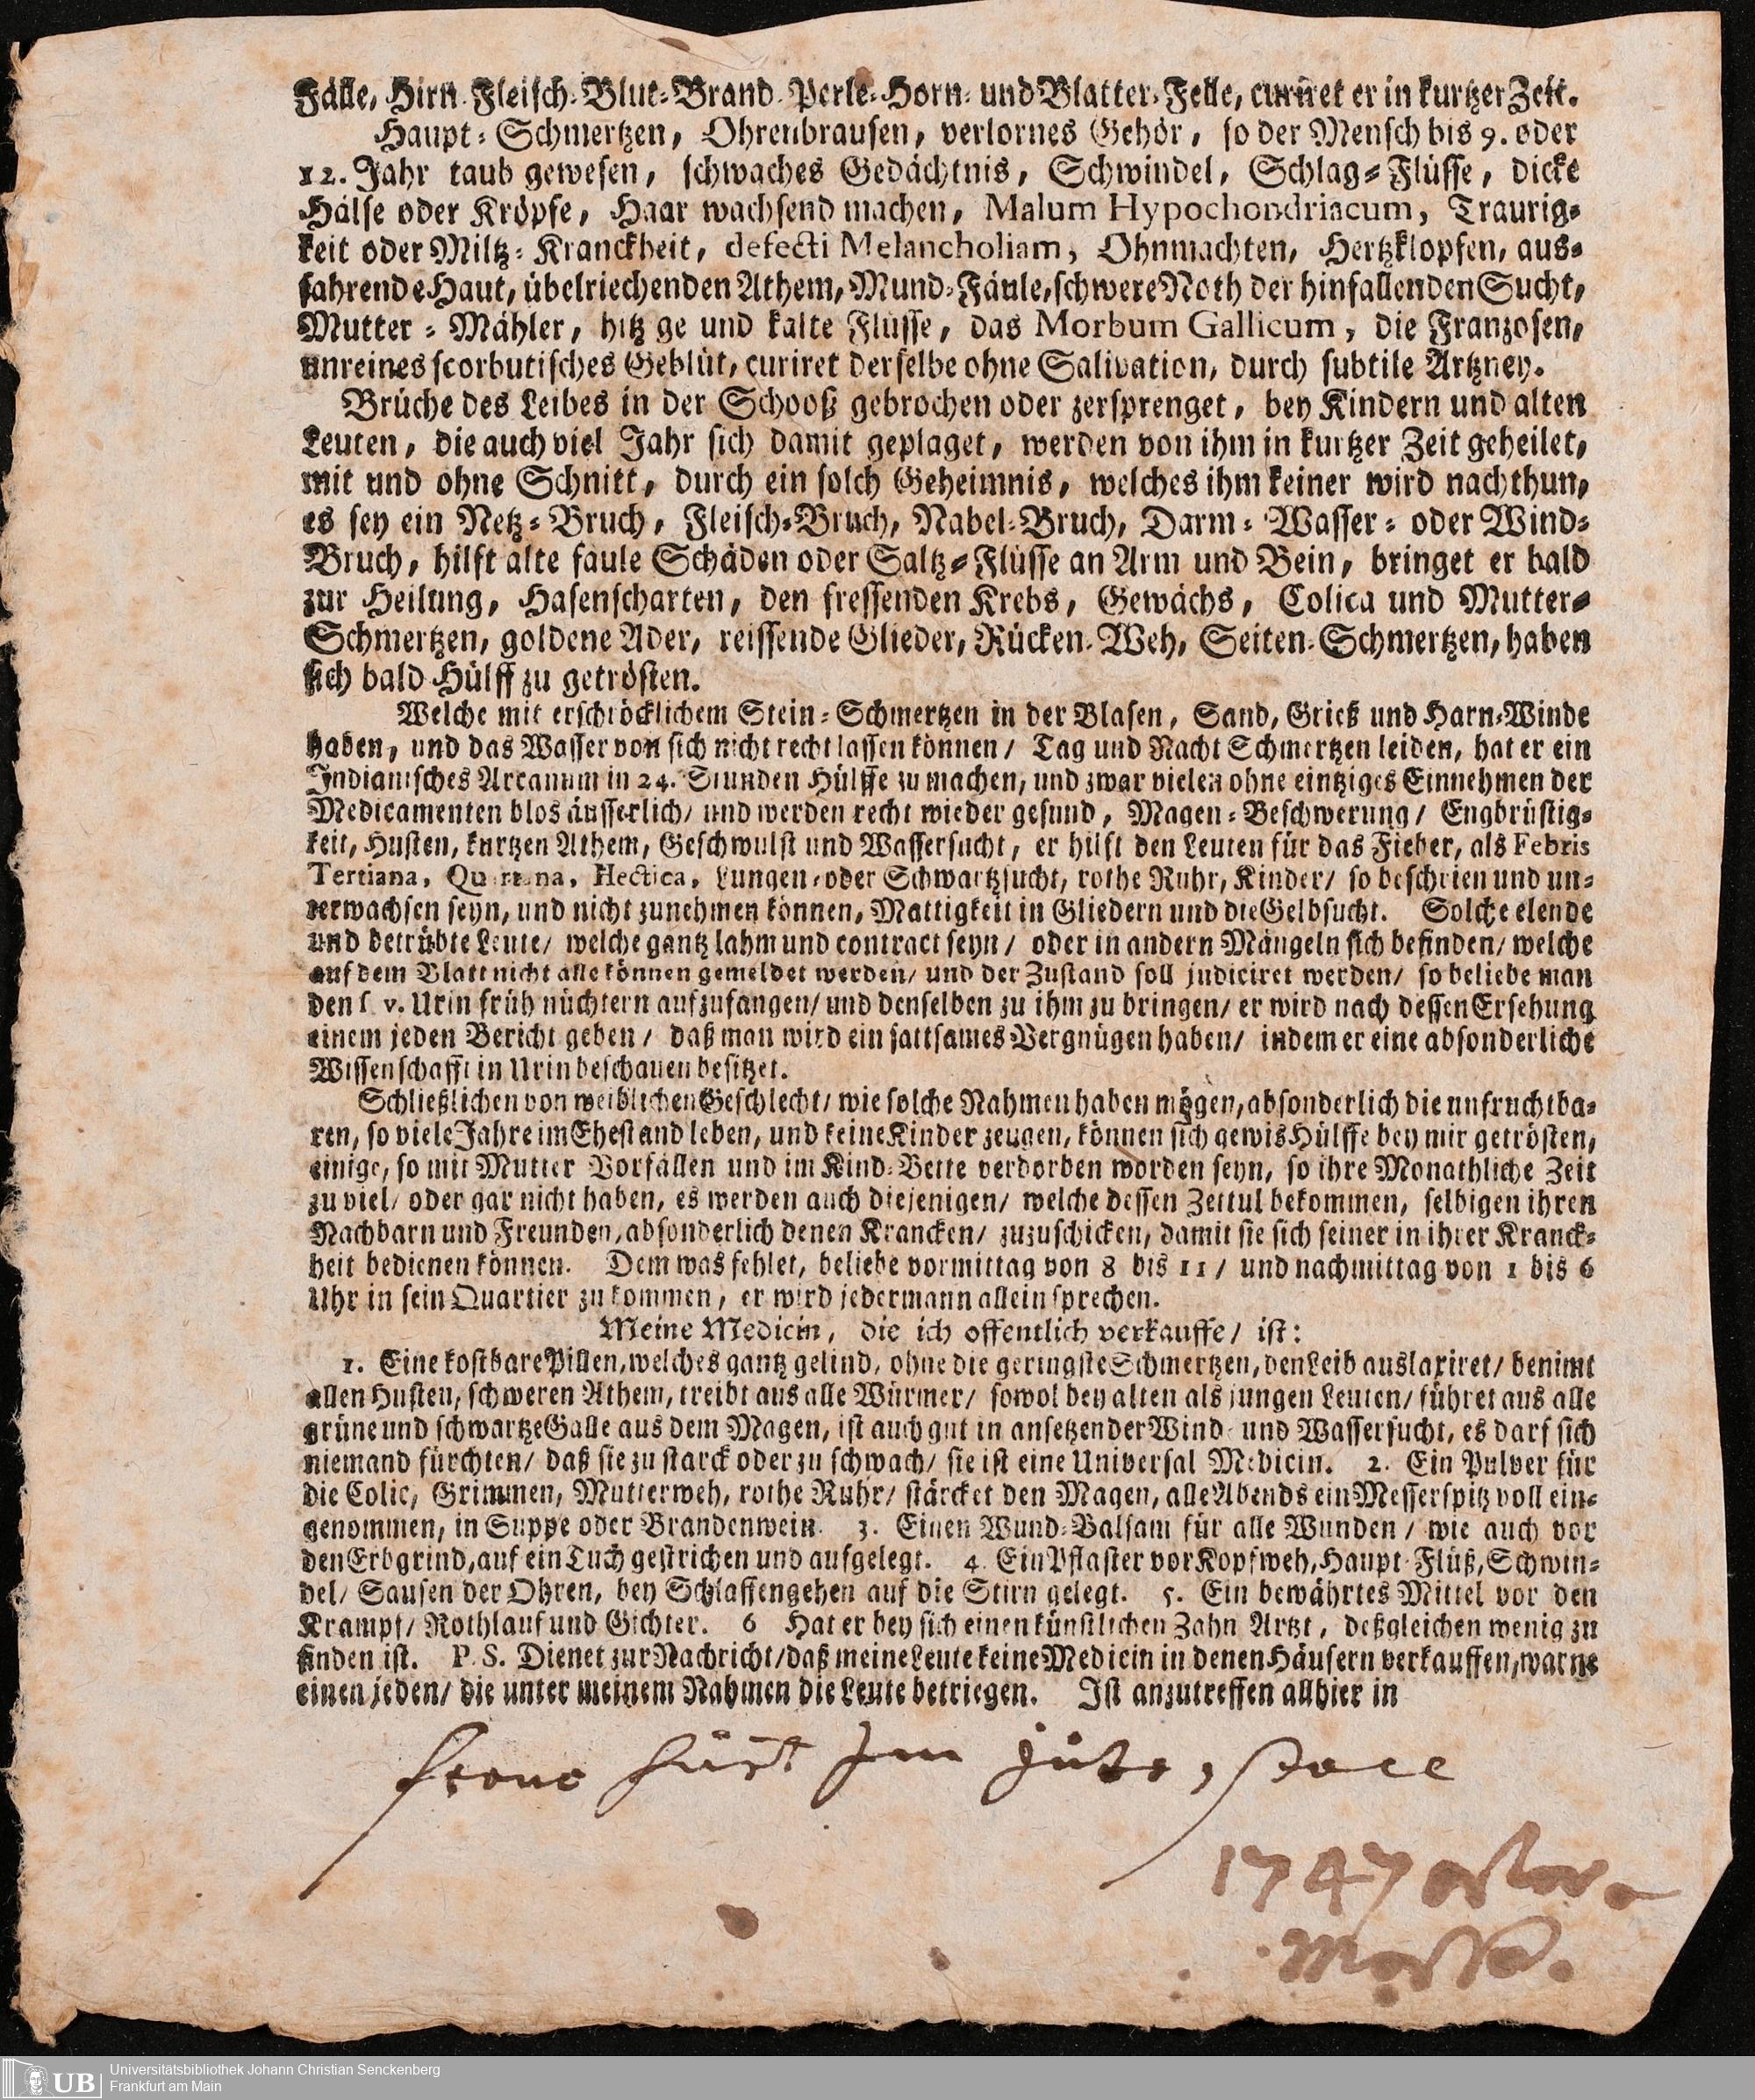 Fälle, Hirn- Fleisch-Blut-Brand-Perle-Horn- und Blatter-Felle, curiret er in kurtzer Zeit.
Haupt-Schmertzen, Ohrenbrausen, verlornes Gehör, so der Mensch bis 9. oder
12. Jahr taub gewesen, schwaches Gedächtnis, Schwindel, Schlag-Flüsse, dicke
Hälse oder Kröpfe, Haar wachsend machen, Malum Hypochondriacum, Traurig-
keit oder Miltz-Kranckheit, defecti Melancholiam, Ohnmachten, Hertzklopfen, aus-
fahrende Haut, übelriechenden Athem, Mund-Fäule, schwere Noth der hinfallenden Sucht,
Mutter-Mähler, hitzge und kalte Flüsse, das Morbum Gallicum, die Franzosen,
unreines scorbutisches Geblüt, curiret derselbe ohne Salivation, durch subtile Artzney.
Brüche des Leibes in der Schooß gebrochen oder zersprenget, bey Kindern und alten
Leuten, die auch viel Jahr sich damit geplaget, werden von ihm in kurtzer Zeit geheilet,
mit und ohne Schnitt, durch ein solch Geheimnis, welches ihm keiner wird nachthun,
es sey ein Netz-Bruch, Fleisch-Bruch, Nabel-Bruch, Darm-Wasser- oder Wind-
Bruch, hilft alte faule Schäden oder Saltz-Flüsse an Arm und Bein, bringet er bald
zur Heilung, Hasenscharten, den fressenden Krebs, Gewächs, Colica und Mutter-
Schmertzen, goldene Ader, reissende Glieder, Rücken-Weh, Seiten-Schmertzen, haben
sich bald Hülff zu getrösten.
Welche mit erschröcklichem Stein-Schmertzen in der Blasen, Sand, Grieß und Harn-Winde
haben, und das Wasser von sich nicht recht lassen können/ Tag und Nacht Schmertzen leiden, hat er ein
Indianisches Arcanum in 24. Stunden Hülffe zu machen, und zwar vielen ohne eintziges Einnehmen der
Medicamenten blos äusserlich/ und werden recht wieder gesund, Magen-Beschwerung/ Engbrüstig-
keit, Husten, kurtzen Athem, Geschwulst und Wassersucht, er hilft den Leuten für das Fieber, als Febris
Tertiana, Quartana, Hectica, Lungen- oder Schwartzsucht, rothe Ruhr, Kinder/ so beschrien und un-
verwachsen seyn, und nicht zunehmen können, Mattigkeit in Gliedern und die Gelbsucht. Solche elende
und betrübte Leute/ welche gantz lahm und contract seyn/ oder in andern Mängeln sich befinden/ welche
auf dem Blatt nicht alle können gemeldet werden/ und der Zustand soll judiciret werden/ so beliebe man
den s. v. Urin früh nüchtern aufzufangen/ und denselben zu ihm zu bringen/ er wird nach dessen Ersehung
einem jeden Bericht geben/ daß man wird ein sattsames Vergnügen haben/ indem er eine absonderliche
Wissenschafft in Urin beschauen besitzet.
Schließlichen von weiblichen Geschlecht/ wie solche Nahmen haben mögen, absonderlich die unfruchtba-
ren, so viele Jahre im Ehestand leben, und keine Kinder zeugen, können sich gewis Hülffe bey mir getrösten,
einige, so mit Mutter Vorfällen und im Kind-Bette verdorben worden seyn, so ihre Monathliche Zeit
zu viel/ oder gar nicht haben, es werden auch diejenigen/ welche dessen Zettul bekommen, selbigen ihren
Nachbarn und Freunden, absonderlich denen Krancken/ zuzuschicken, damit sie sich seiner in ihrer Kranck-
heit bedienen können. Dem was fehlet, beliebe vormittag von 8 bis 11/ und nachmittag von 1 bis 6
Uhr in sein Quartier zu kommen, er wird jedermann allein sprechen.
Meine Medicin, die ich offentlich verkauffe/ ist:
1. Eine kostbare Pillen, welches gantz gelind, ohne die geringste Schmertzen, den Leib auslaxiret/ benimt
allen Husten, schweren Athem, treibt aus alle Würmer/ sowol bey alten als jungen Leuten/ führet aus alle
grüne und schwartze Galle aus dem Magen, ist auch gut in ansetzender Wind- und Wassersucht, es darf sich
niemand fürchten/ daß sie zu starck oder zu schwach/ sie ist eine Universal Medicin. 2. Ein Pulver für
die Colic, Grimmen, Mutterweh, rothe Ruhr/ stärcket den Magen, alle Abends ein Messerspitz voll ein-
genommen, in Suppe oder Brandenwein. 3. Einen Wund-Balsam für alle Wunden/ wie auch vor
den Erbgrind, auf ein Tuch gestrichen und aufgelegt. 4. Ein Pflaster vor Kopfweh, Haupt-Flüß, Schwin-
del/ Sausen der Ohren, bey Schlaffengehen auf die Stirn gelegt. 5. Ein bewährtes Mittel vor den
Krampf/ Rothlauf und Gichter. 6 Hat er bey sich einen künstlichen Zahn Artzt, deßgleichen wenig zu
finden ist. P. S. Dienet zur Nachricht/ daß meine Leute keine Medicin in denen Häusern verkauffen, warne
einen jeden/ die unter meinem Nahmen die Leute betriegen. Ist anzutreffen allhier in
1747
Universitätsbibliothek Johann Christian Senckenberg
UB Frankfurt am Main